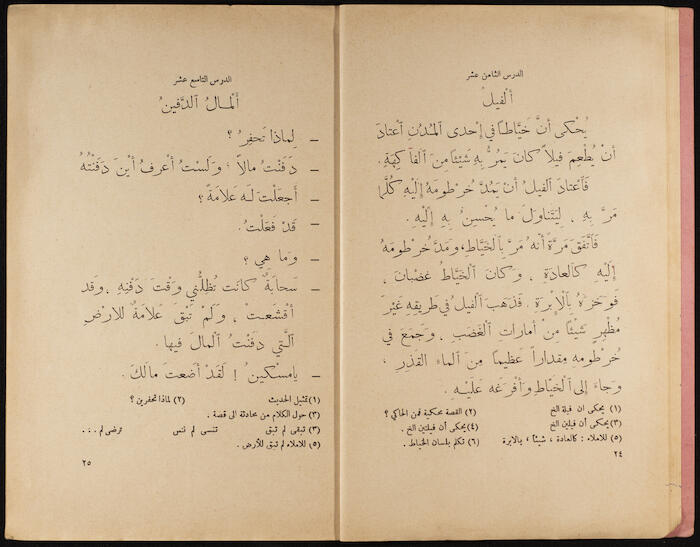 الدرس الثامن عشر
اَلْفِيلُ
يُحْكى أنَّ خَيَّاطاً في إحْدى اَلْمُدُنِ اَعْتادَ
أنْ يُطْعِمَ فيلاً كانَ يَمُرُّ بِهِ شَيْئاً مِنَ اَلْفاكِهَةِ.
فَاَعْتادَ اَلْفيلُ أنْ يَمُدَّ خُرْطومَهُ إلَيْهِ كُلَّما
مَرَّ بِهِ، لِيَتَناوَلَ ما يُحْسِنُ بِهِ إلَيْهِ.
فَاَتَّفَقَ مَرَّةً أنَّهُ مَرَّ بِاَلْخَيَّاطِ، وَمَدَّ خُرْطومَهُ
إلَيْهِ كَاَلْعادَةِ، وَكانَ اَلْخَيَّاطُ غَضْبانَ،
فَوَخَزَهُ بِاَلْإبْرَةِ. فَذَهَبَ اَلْفيلُ في طَريقِهِ غَيْرَ
مُظْهِرٍ شَيْئاً مِنْ أماراتِ اَلْغَضَبِ. وَجَمَعَ في
خُرْطومِهِ مِقْداراً عَظيماً مِنَ اَلْماءِ اَلْقَذِرِ،
وَجاءَ إلى اَلْخَيَّاطِ وَأفْرَغَهُ عَلَيْهِ.
(١) يحكى ان فيلة الخ (٢) القصة محكية فمن الحاكي ؟
(٣) يحكى أن فيلين الخ (٤) يحكى أن فيلتين الخ.
(٥) للاملاء : كالعادة ، شيئاً ، بالابرة (٦) تكلم بلسان الخياط.
٢٤
الدرس التاسع عشر
اَلْمالُ اَلدَّفينُ
ـ لِماذا تَحْفِرُ ؟
ـ دَفَنْتُ مالاً، وَلَسْتُ أعْرِفُ أيْنَ دَفَنْتُهُ
ـ أجَعَلْتَ لَهُ عَلامَةً ؟
ـ قَدْ فَعَلْتُ.
ـ وَما هِيَ ؟
ـ سَحابَةٌ كانَتْ تُظِلُّني وَقْتَ دَفْنِهِ، وَقَد
أقْشَعَتْ، وَلَمْ تَبْقَ عَلامَةٌ لِلْأرْضِ
اَلَّتي دَفَنْتُ اَلْمالَ فيها.
ـ يا مِسْكينُ ! لَقَدْ أضَعْتَ مالَكَ.
(١) تمثيل الحديث (٢) لماذا تحفرين ؟
(٣) حول الكلام من محادثة الى قصة.
(٣) تبقى لم تبق تنسى لم تنس ترضى لم ....
(٥) للاملاء لم تبق للأرض.
٢٥